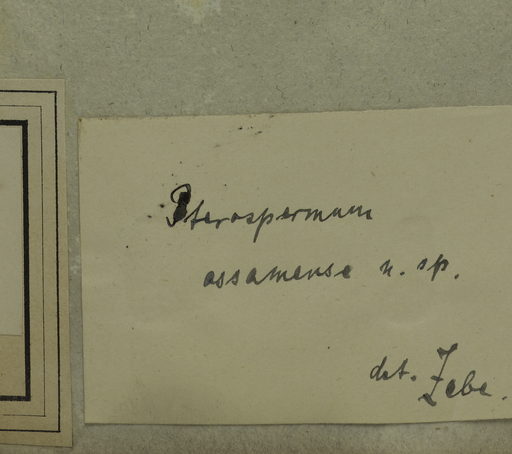 Pterospermum
assamense n. sp.
det. Zebe.